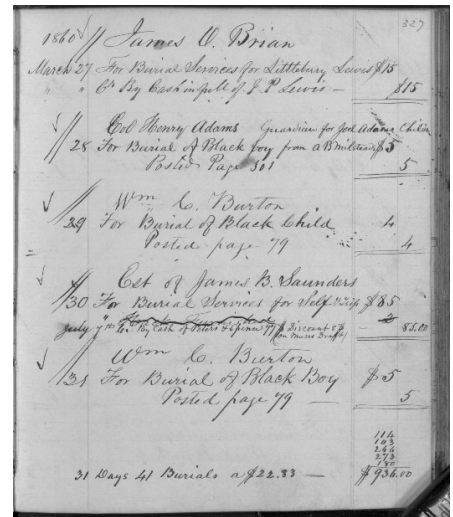 327
1860 // James O. Brian
March 27 For Burial Services for Littlebury Lewis $15
" " Cr By Cash in full of J P Lewis — $15
// Col Henry Adams Guardian for Joel Adams Childn
28 For Burial of Black boy from a B $5
Posted Page 501 5
Wm C. Burton
// 29 For Burial of Black Child 4
Posted page 79 4
Est of James B. Saunders
// 30 For Burial Services for Self & Trip $85
July 7th Cr By Cash of 77 $ Discount 85.00
Wm C. Burton
// 31 For Burial of Black Boy $5
Posted page 79 — 5
114
103
266
273
180
31 Days 41 Burials a $22.83 — $936.00